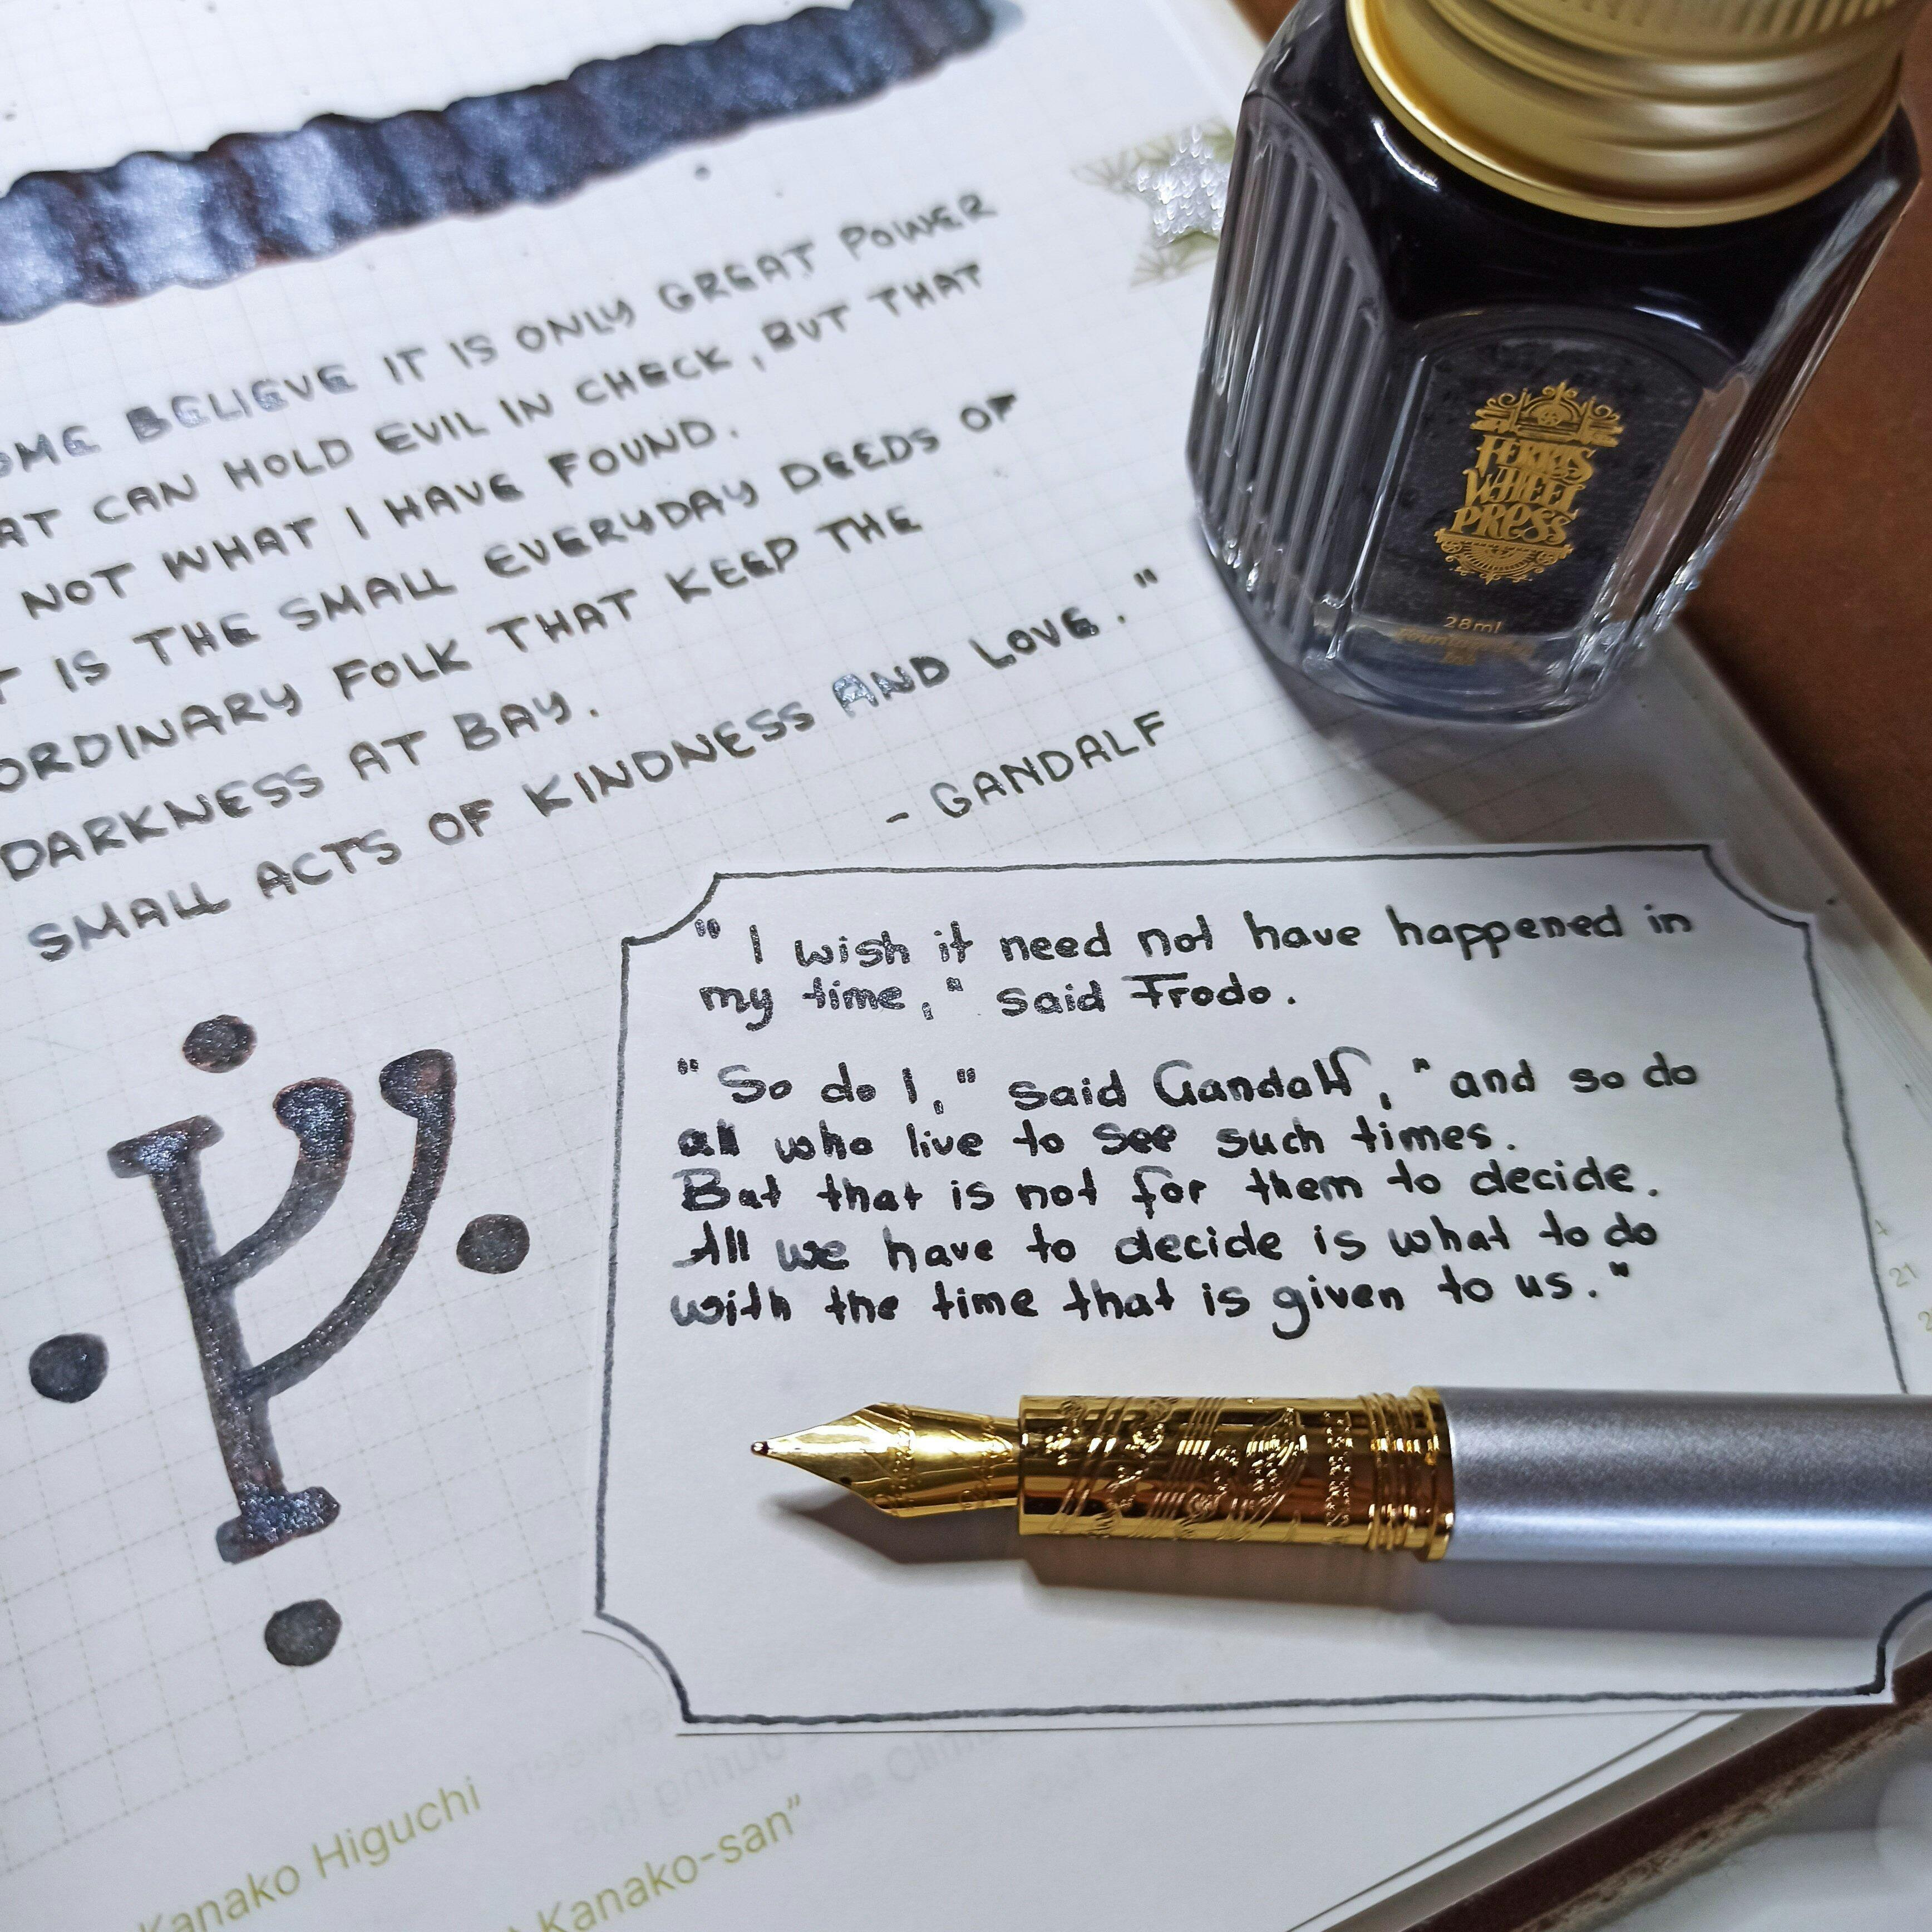 BELIEVE IT IS ONLY GREAT POWER
CAN HOLD EVIL IN CHECK, BUT THAT
NOT WHAT I HAVE FOUND.
IS THE SMALL EVERYDAY DEEDS OF
ORDINARY FOLK THAT KEEP THE
DARKNESS AT BAY.
SMALL ACTS OF KINDNESS AND LOVE."
- GANDALF
"I wish it need not have happened in
my time," said Frodo.
"So do I," said Gandalf, "and so do
all who live to see such times.
But that is not for them to decide.
All we have to decide is what to do
with the time that is given to us."
FERRIS
WHEEL
PRESS
28ml
21
Kanako Higuchi
Kanako-san"